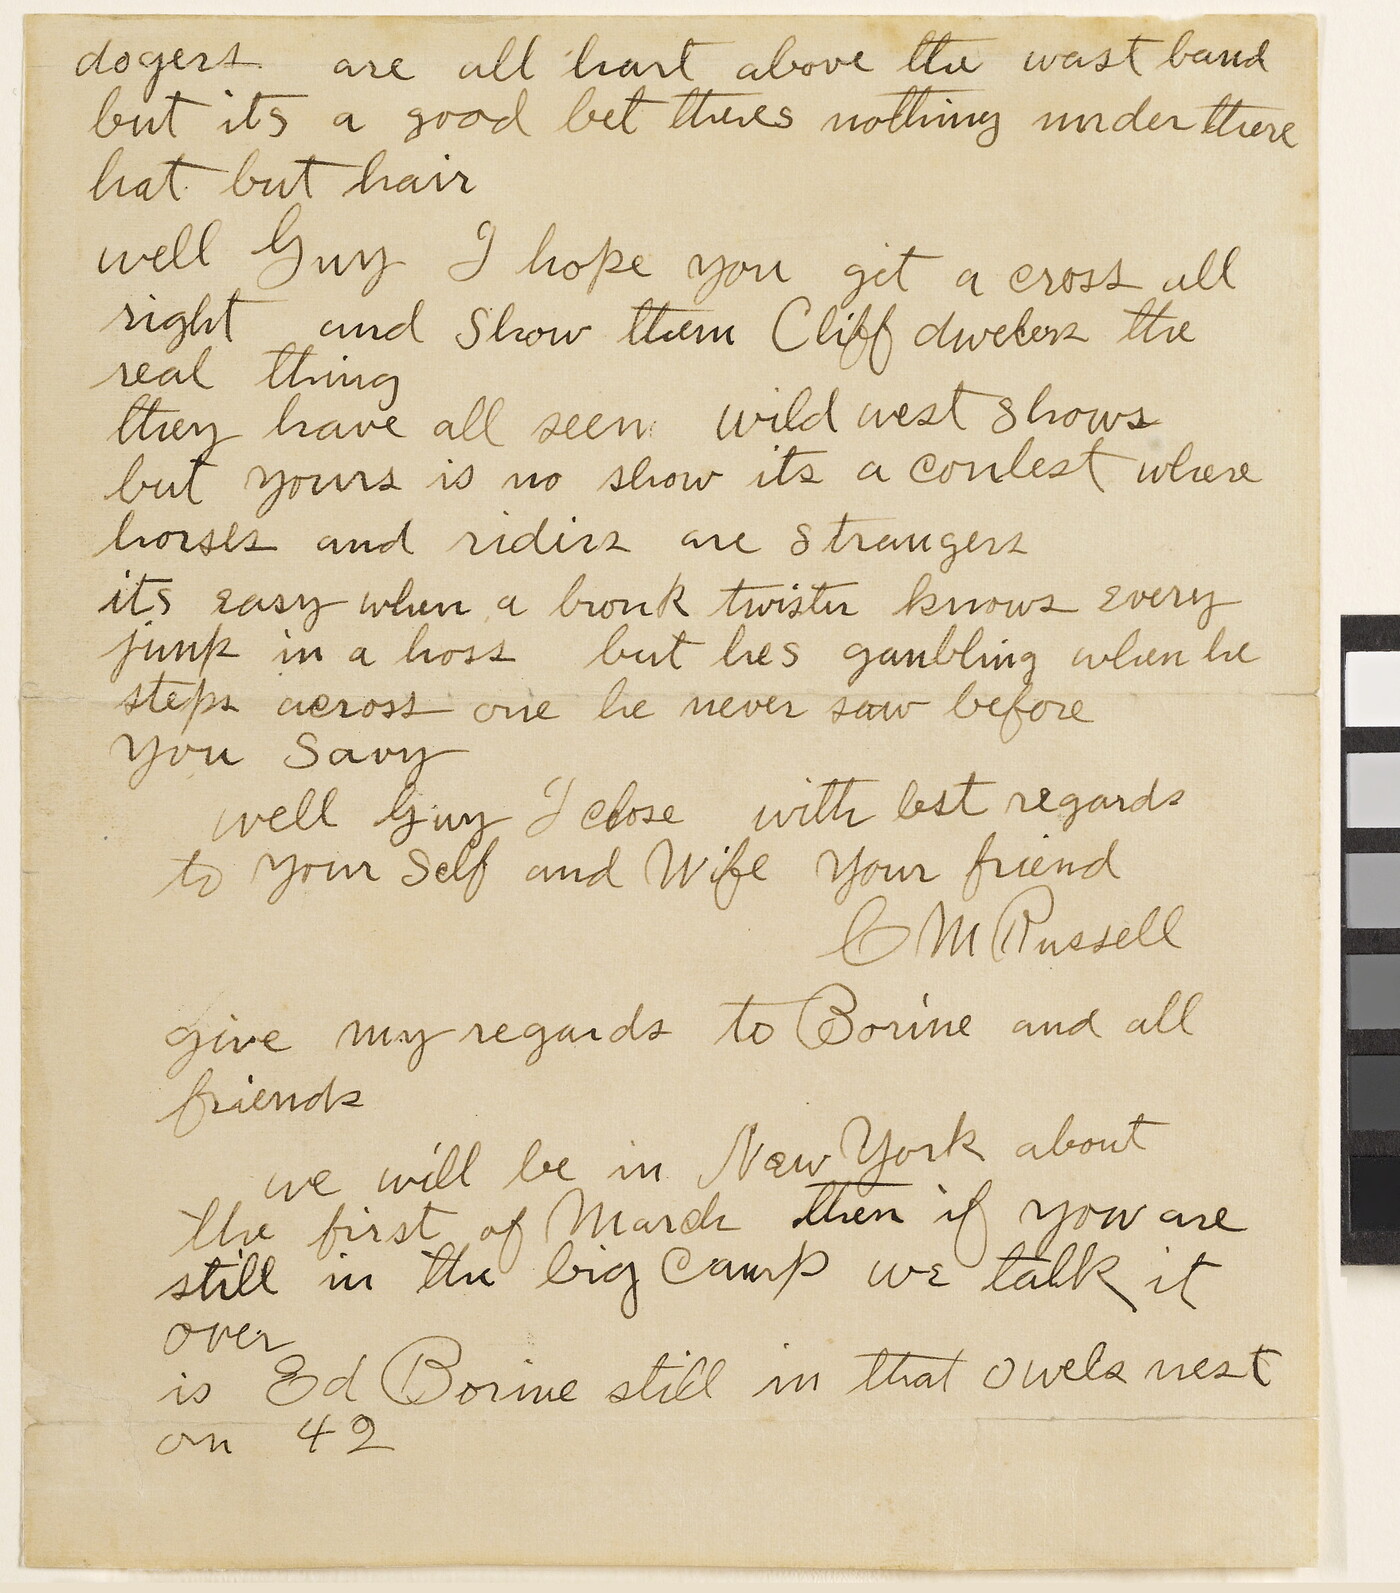 dogers are all hart above the wast band
but its a good bet theres nothing under there
hat but hair
well Guy I hope you git a cross all
right and Show them Cliff dwelers the
real thing
they have all seen wild west shows
but yours is no show its a contest where
horses and riders are strangers
its easy when a bronk twister knows every
jump in a hoss but hes gambling when he
steps across one he never saw before
you Savy
well Guy I close with best regards
to your Self and Wife your friend
C M Russell
give my regards to Borine and all
friends
we will be in New York about
the first of March then if you are
still in the big Camp we talk it
over
is Ed Borine still in that owels nest
on 42